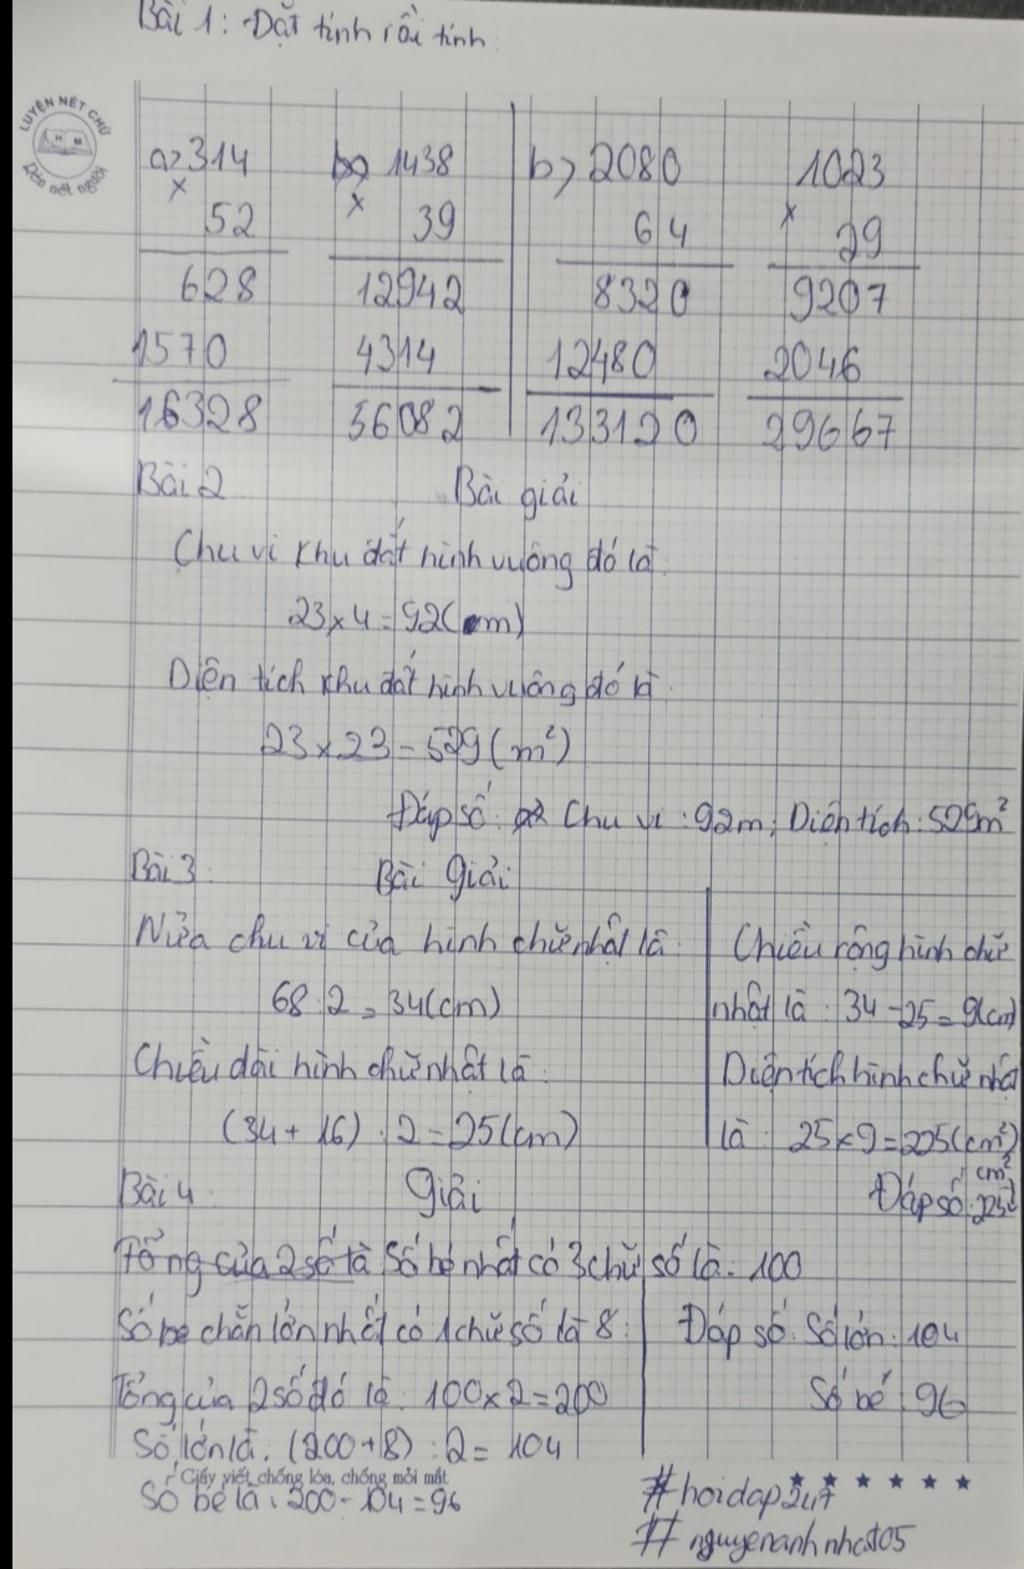 Bài 1: Đặt tính rồi tính:
LUYỆN NÉT CHỮ
H M
Rèn nết người
a> 314 b> 1438 b> 2080 1023
x x x
52 39 64 29
628 12942 8320 9207
1570 4314 12480 2046
16328 56082 133120 29667
Bài 2 Bài giải
Chu vi khu đất hình vuông đó là:
23 x 4 = 92 (m)
Diện tích khu đất hình vuông đó là:
23 x 23 = 529 (m²)
Đáp số: Chu vi: 92m; Diện tích: 529m²
Bài 3: Bài Giải
Nửa chu vi của hình chữ nhật là:
68 : 2 = 34 (cm)
Chiều dài hình chữ nhật là:
(34 + 16) : 2 = 25 (cm)
Chiều rộng hình chữ
nhật là: 34 - 25 = 9 (cm)
Diện tích hình chữ nhật
là: 25 x 9 = 225 (cm²)
cm²
Đáp số: 225
Bài 4 Giải
Tổng của 2 số là Số bé nhất có 3 chữ số là: 100
Số chẵn lớn nhất có 1 chữ số là 8:
Tổng của 2 số đó là: 100 x 2 = 200
Số lớn là: (200 + 8) : 2 = 104
Giấy viết chống lóa, chống mỏi mắt
Số bé là: 200 - 104 = 96
Đáp số: Số lớn: 104
Số bé: 96
#hoidap247
#nguyenanhnhat05